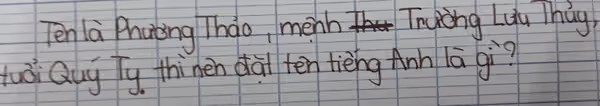 Tên là Phương Thảo, mệnh Trường Lưu Thủy,
tuổi Quý Tỵ. thì nên đặt tên tiếng Anh là gì?